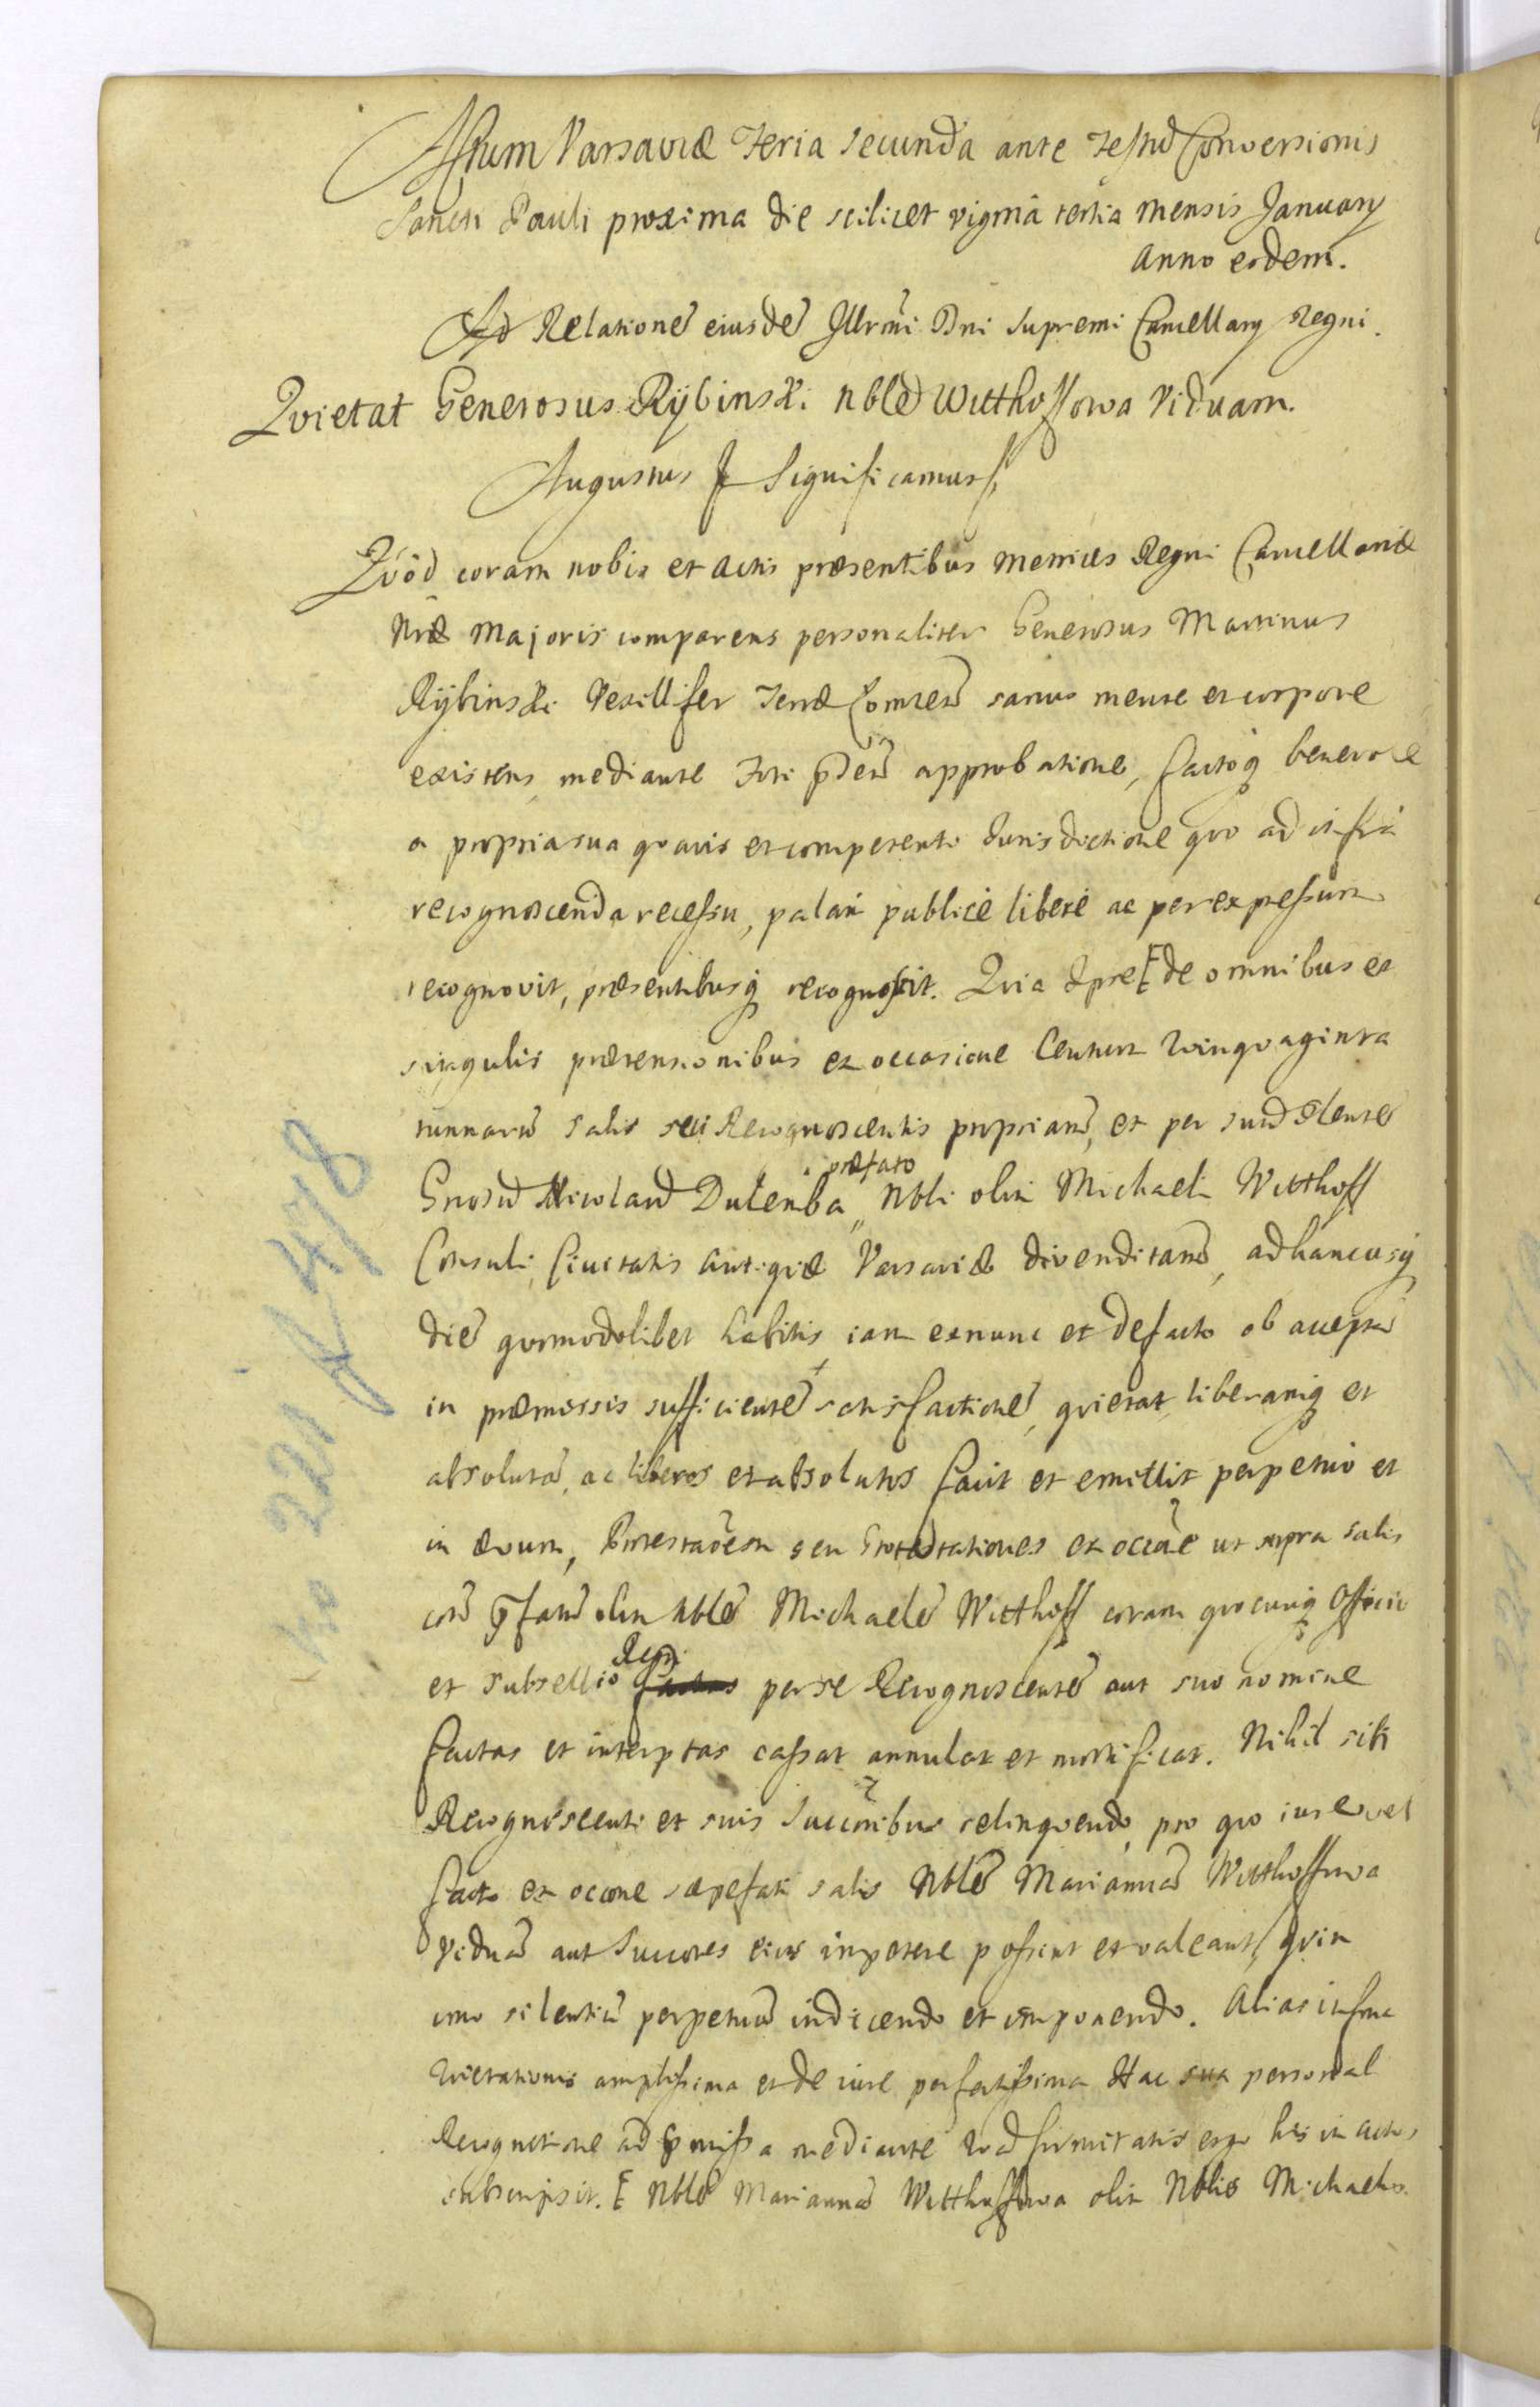 Actum Varsaviæ Feria secunda ante Festũ Conversionis
Sancti Pauli proxima die scilicet vigmã tertia mensis January
Anno eodem.
Ad Relationẽ eiusdẽ Illrmi Dni Supremi Cancellary Regni.
Qvietat Generosus Rÿbinski Nblẽ Witthoffowa Viduam.
Augustus Significamus
Qvod coram nobis et Actis præsentibus Metrices Regni Cancellariæ
Nræ Majoris comparens personaliter Generosus Martinus
Rÿbinski Vexillifer Terræ sanus mente et corpore
existens, mediante Fori approbatione, factoq benevole
a propria sua qvavis et competenti Jurisdictione qvo ad infra
recognoscenda recessu, palam publicè liberè ac per expressum
recognovit, præsentibusq recognoscit. Qvia Ipse de omnibus et
singulis prætensionibus ex occasione Centum Qvinqvaginta
tunnarũ salis sui Recognoscentis propriarũ, et per suũ Clientẽ
Gnosũ Nicolaũ Dulemba præfato Nbli olim Michaeli Witthoff
Consuli Civitatis Antiqvæ Varsaviæ divenditarũ, adhancusq
diẽ qvomodolibet habitis, iam exnunc et defacto ob acceptã
in præmissis sufficientẽ satisfactionẽ, qvietat, liberamq et
absolutã, ac liberos et absolutos facit et emittit perpetuò et
in ævum, seu Protestationes ex ut supra salis
olim Nblẽ Michaelẽ Witthoff coram qvocunq Officio
et subsellio Regni per se Recognoscentẽ aut suo nomine
factas et interptas cassat annulat et mortificat. Nihil sibi
Recognoscenti et suis Succoribus relinqvendo, pro qvo iure vel
facto ex occone sæpefati salis Nblẽ Mariannã Witthoffowa
Viduã aut Succores eius impetere possint et valeant, qvin
imo silentiũ perpetuũ indicendo et imponendo. Alias in forma
Qvietationis amplissima et de iure perfectissima Hac sua personal
Recognitione ad mediante Qvod firmitatis ergo hic in Actis
subscripsit. Nblẽ Mariannã Witthoffowa olim Nblis Michaelis
No 221 K 478